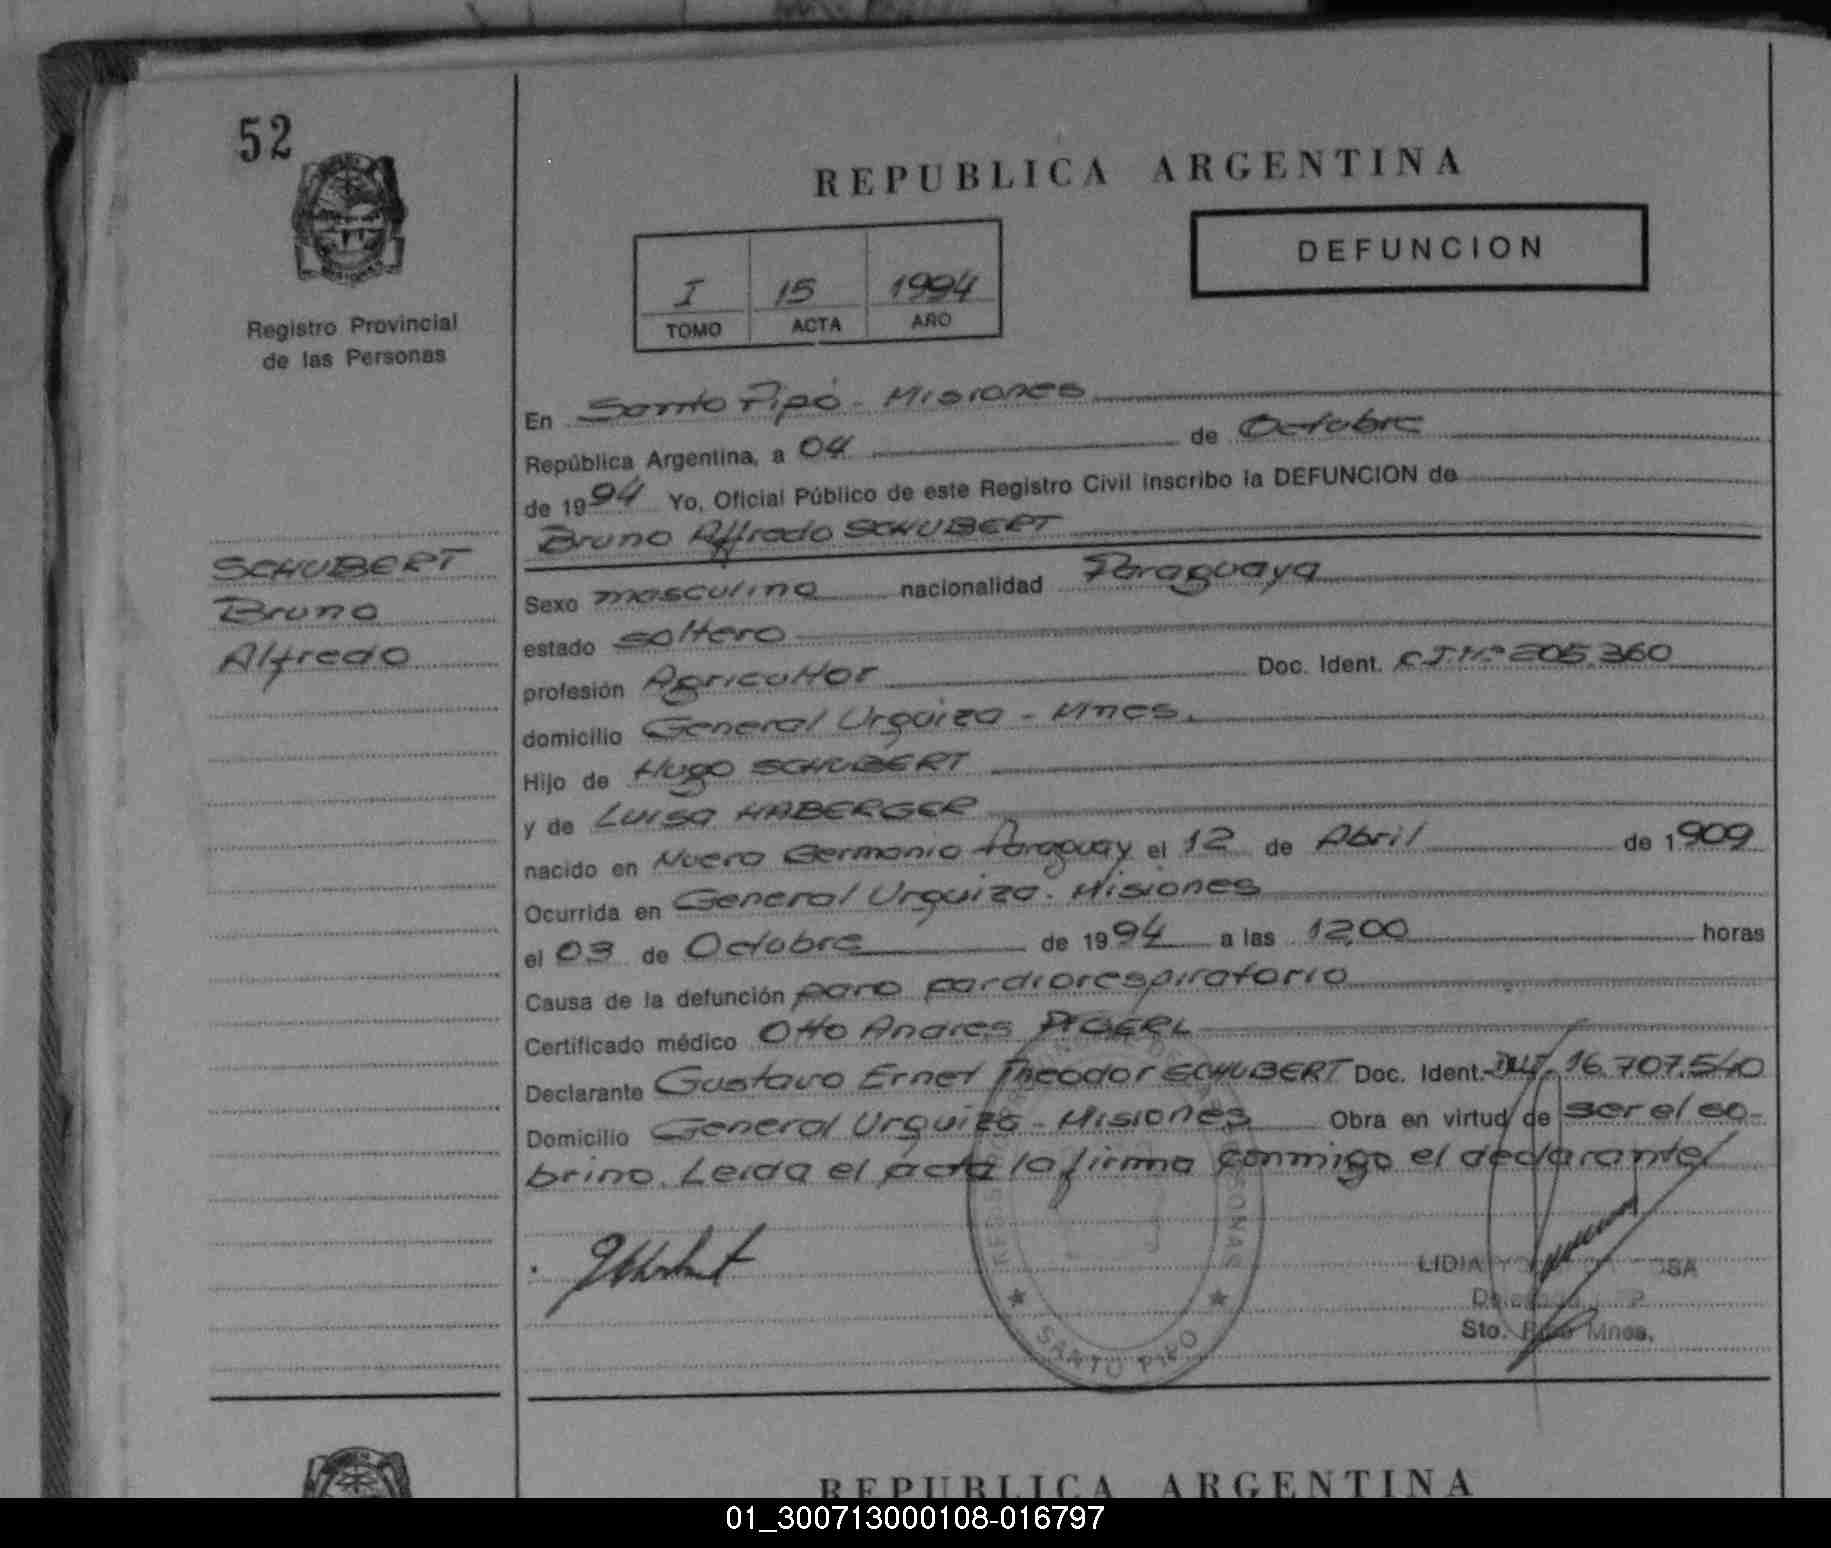 52
REPUBLICA ARGENTINA
DEFUNCION
I 15 1994
TOMO ACTA AÑO
Registro Provincial
de las Personas
En Santo Pipó - Misiones
República Argentina, a 04 de Octubre
de 1994 Yo, Oficial Público de este Registro Civil inscribo la DEFUNCION de
Bruno Alfredo SCHUBERT
SCHUBERT
Bruno
Alfredo
Sexo masculino nacionalidad Paraguaya
estado soltero
profesión Agricultor Doc. Ident. C.I.Nº 205.360
domicilio General Urquiza - Mnes.
Hijo de Hugo SCHUBERT
y de Luisa HABERGER
nacido en Nueva Germania Paraguay el 12 de Abril de 1909
Ocurrida en General Urquiza. Misiones
el 03 de Octubre de 1994 a las 12,00 horas
Causa de la defunción paro cardiorespiratorio
Certificado médico Otto Andres
Declarante Gustavo Ernet Theodor SCHUBERT Doc. Ident. 16.707.540
Domicilio General Urquiza - Misiones Obra en virtud de ser el so-
brino. Leida el acta la firma conmigo el declarante
LIDIA
Sto. Pipó Mnes.
SANTO PIPO
REPUBLICA ARGENTINA
01_300713000108-016797